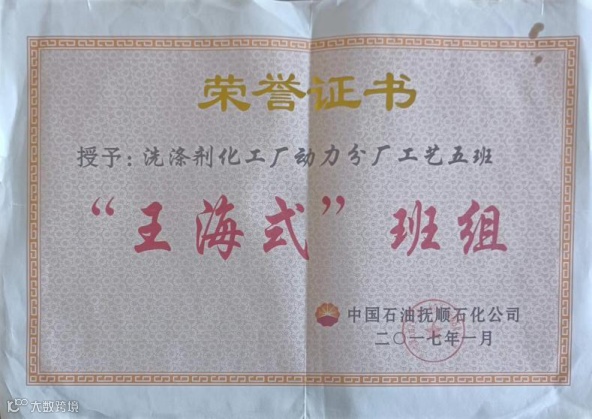 荣誉证书
授予：洗涤剂化工厂动力分厂工艺五班
“王海式”班组
中国石油抚顺石化公司
二〇一七年一月
大数跨境